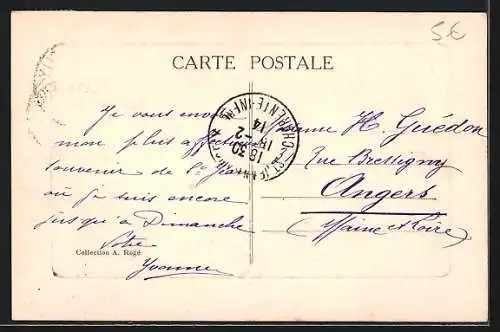 5€
CARTE POSTALE
Je vous envoie
mon plus affectueux
souvenir de St Jean
où je suis encore
jusqu'à Dimanche
Votre
Yvonne
Collection A. Rogé
ST JEAN CHARENTE-INFRE
18 30
18 -2
14
Madame H. Guédon
Rue Bressigny
Angers
Maine et Loire